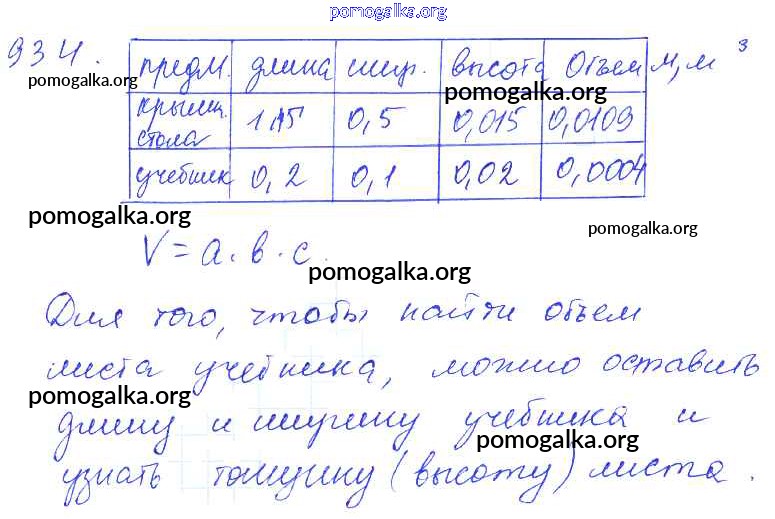 pomogalka.org
934.
pomogalka.org
предм. длина шир. высота Объем м, м³
pomogalka.org
крышк. стола 1,45 0,5 0,015 0,0109
учебник 0,2 0,1 0,02 0,0004
pomogalka.org
pomogalka.org
V = a · в · c.
pomogalka.org
Для того, чтобы найти объем
листа учебника, можно оставить
pomogalka.org
длину и ширину учебника и
pomogalka.org
узнать толщину (высоту) листа.